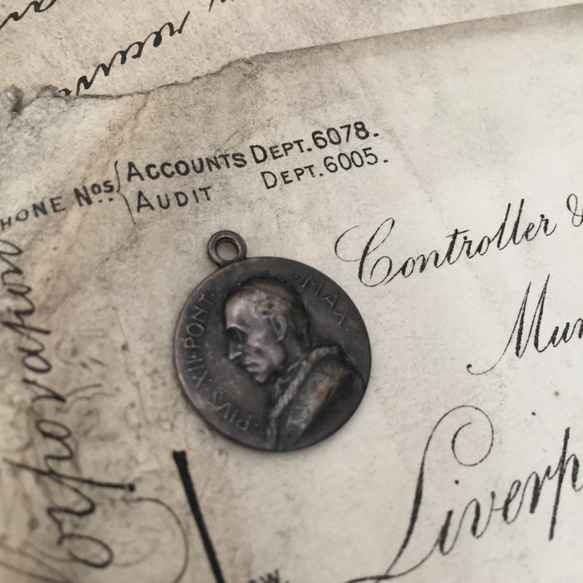 recei
HONE NOS ACCOUNTS DEPT. 6078.
AUDIT DEPT. 6005.
Controller &
Mun
Liverp
Corporation
·PIVS·XII·PONT·MAX·